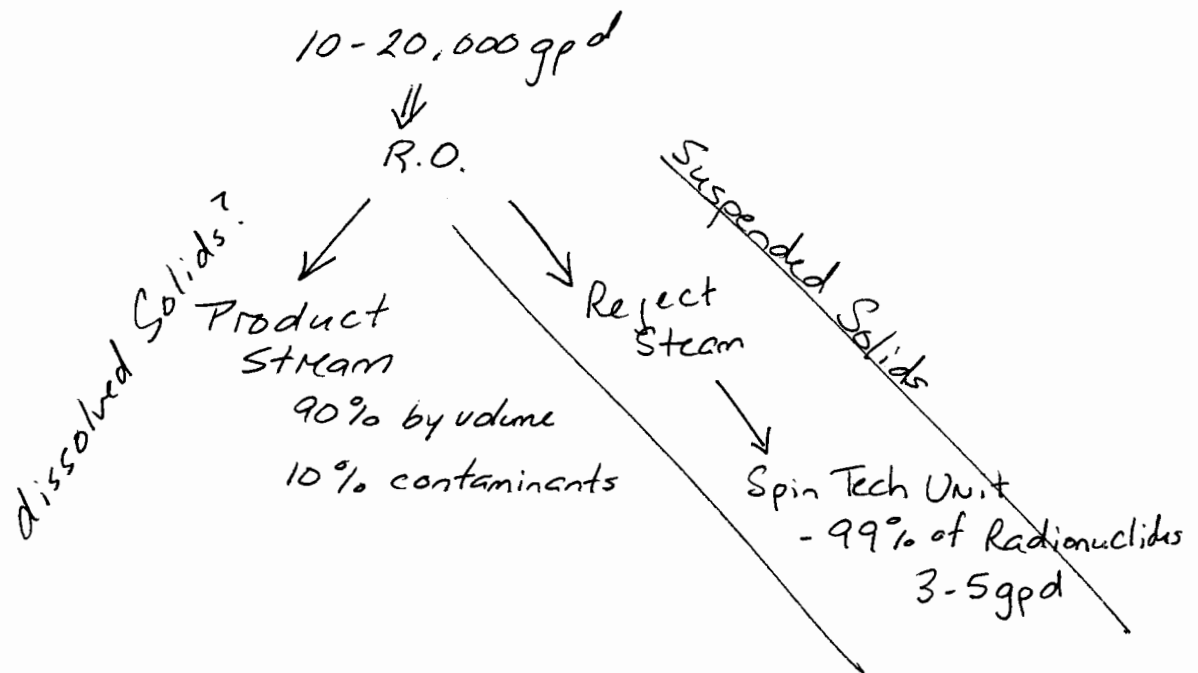 10-20,000 gpd
R.O.
dissolved Solids?
Product
Stream
90% by volume
10% contaminants
Reject
Steam
Suspended Solids
Spin Tech Unit
- 99% of Radionuclides
3-5 gpd